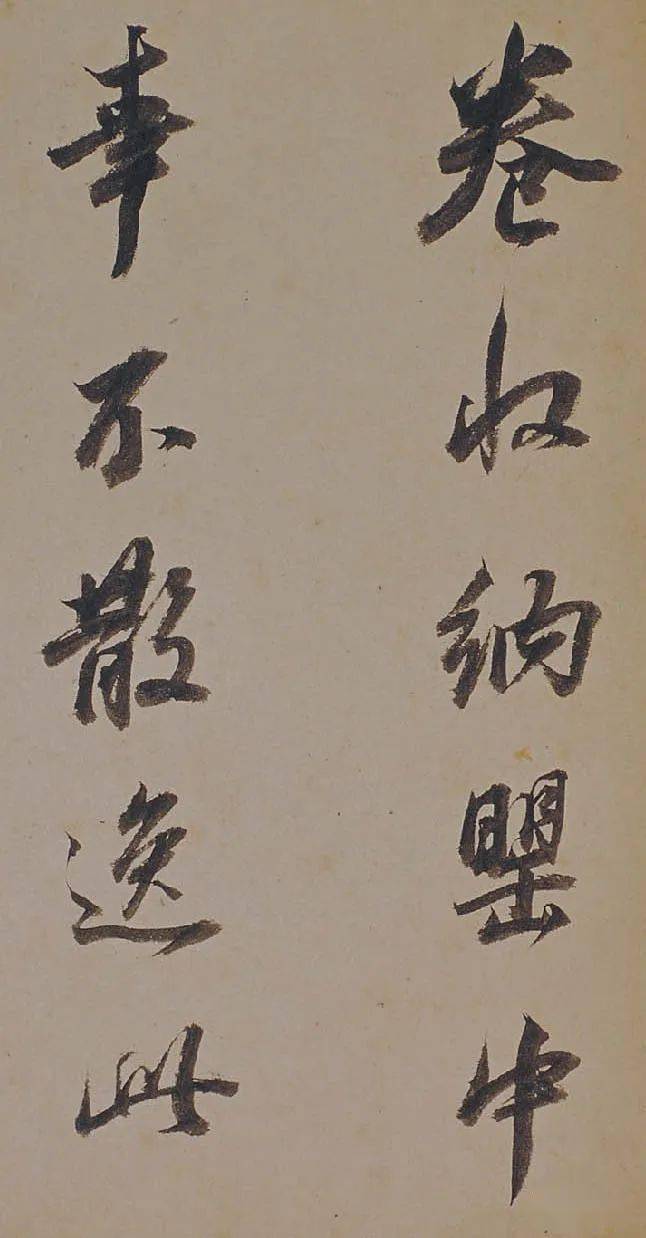 卷收納罌中
事不散逸此